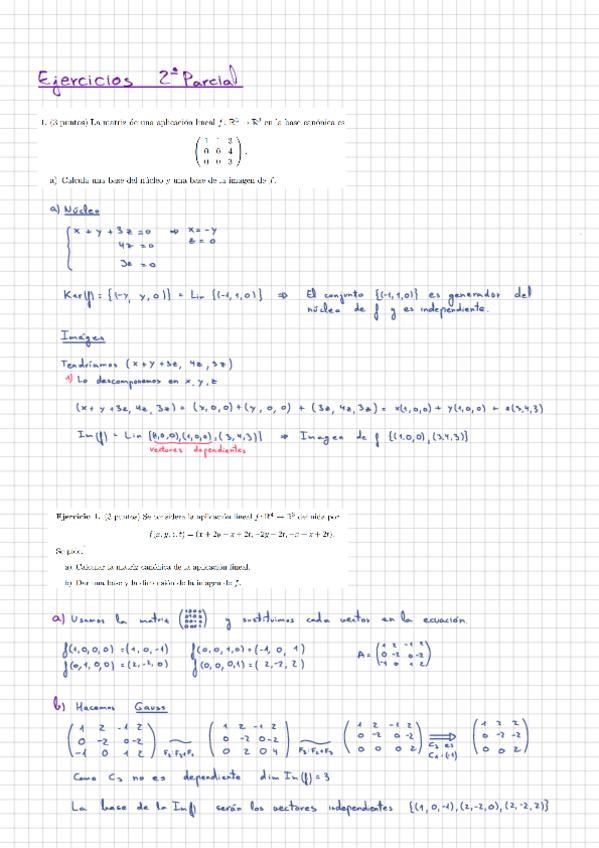 Ejercicios 2º Parcial
1. (3 puntos) La matriz de una aplicación lineal f : R³ → R³ en la base canónica es
( 1 1 3
0 0 4
0 0 3 ) .
a) Calcula una base del núcleo y una base de la imagen de f.
a) Núcleo
{ x + y + 3z = 0 ⇒ x = -y
4z = 0 z = 0
3z = 0
Ker(f) = {(-y, y, 0)} = Lin {(-1,1,0)} ⇒ El conjunto {(-1,1,0)} es generador del
núcleo de f y es independiente.
Imágen
Tendríamos (x+y+3z, 4z, 3z)
1) Lo descomponemos en x, y, z
(x+y+3z, 4z, 3z) = (x,0,0) + (y,0,0) + (3z, 4z, 3z) = x(1,0,0) + y(1,0,0) + z(3,4,3)
Im(f) = Lin {(1,0,0),(1,0,0),(3,4,3)} ⇒ Imagen de f {(1,0,0),(3,4,3)}
vectores dependientes
Ejercicio 1. (3 puntos) Se considera la aplicación lineal f: R⁴ → R³ definida por
f(x, y, z, t) = (x + 2y - z + 2t, -2y - 2t, -x + z + 2t).
Se pide:
a) Calcular la matriz canónica de la aplicación lineal.
b) Dar una base y la dimensión de la imagen de f.
a) Usamos la matriz y sustituimos cada vector en la ecuación.
f(1,0,0,0) = (1,0,-1) f(0,0,1,0) = (-1, 0, 1) A = ( 1 2 -1 2
f(0,1,0,0) = (2,-2,0) f(0,0,0,1) = (2,-2,2) 0 -2 0 -2
-1 0 1 2 )
b) Hacemos Gauss
( 1 2 -1 2 ) ( 1 2 -1 2 ) ( 1 2 -1 2 ) ⇒ ( 1 2 2 )
( 0 -2 0 -2 ) ( 0 -2 0 -2 ) ( 0 -2 0 -2 ) C₃ es ( 0 -2 -2 )
( -1 0 1 2 ) F₃:F₃+F₁ ( 0 2 0 4 ) F₃:F₂+F₃ ( 0 0 0 2 ) C₁·(-1) ( 0 0 2 )
Como C₃ no es dependiente dim Im(f) = 3
La base de la Imf serán los vectores independientes {(1,0,-1),(2,-2,0),(2,-2,2)}